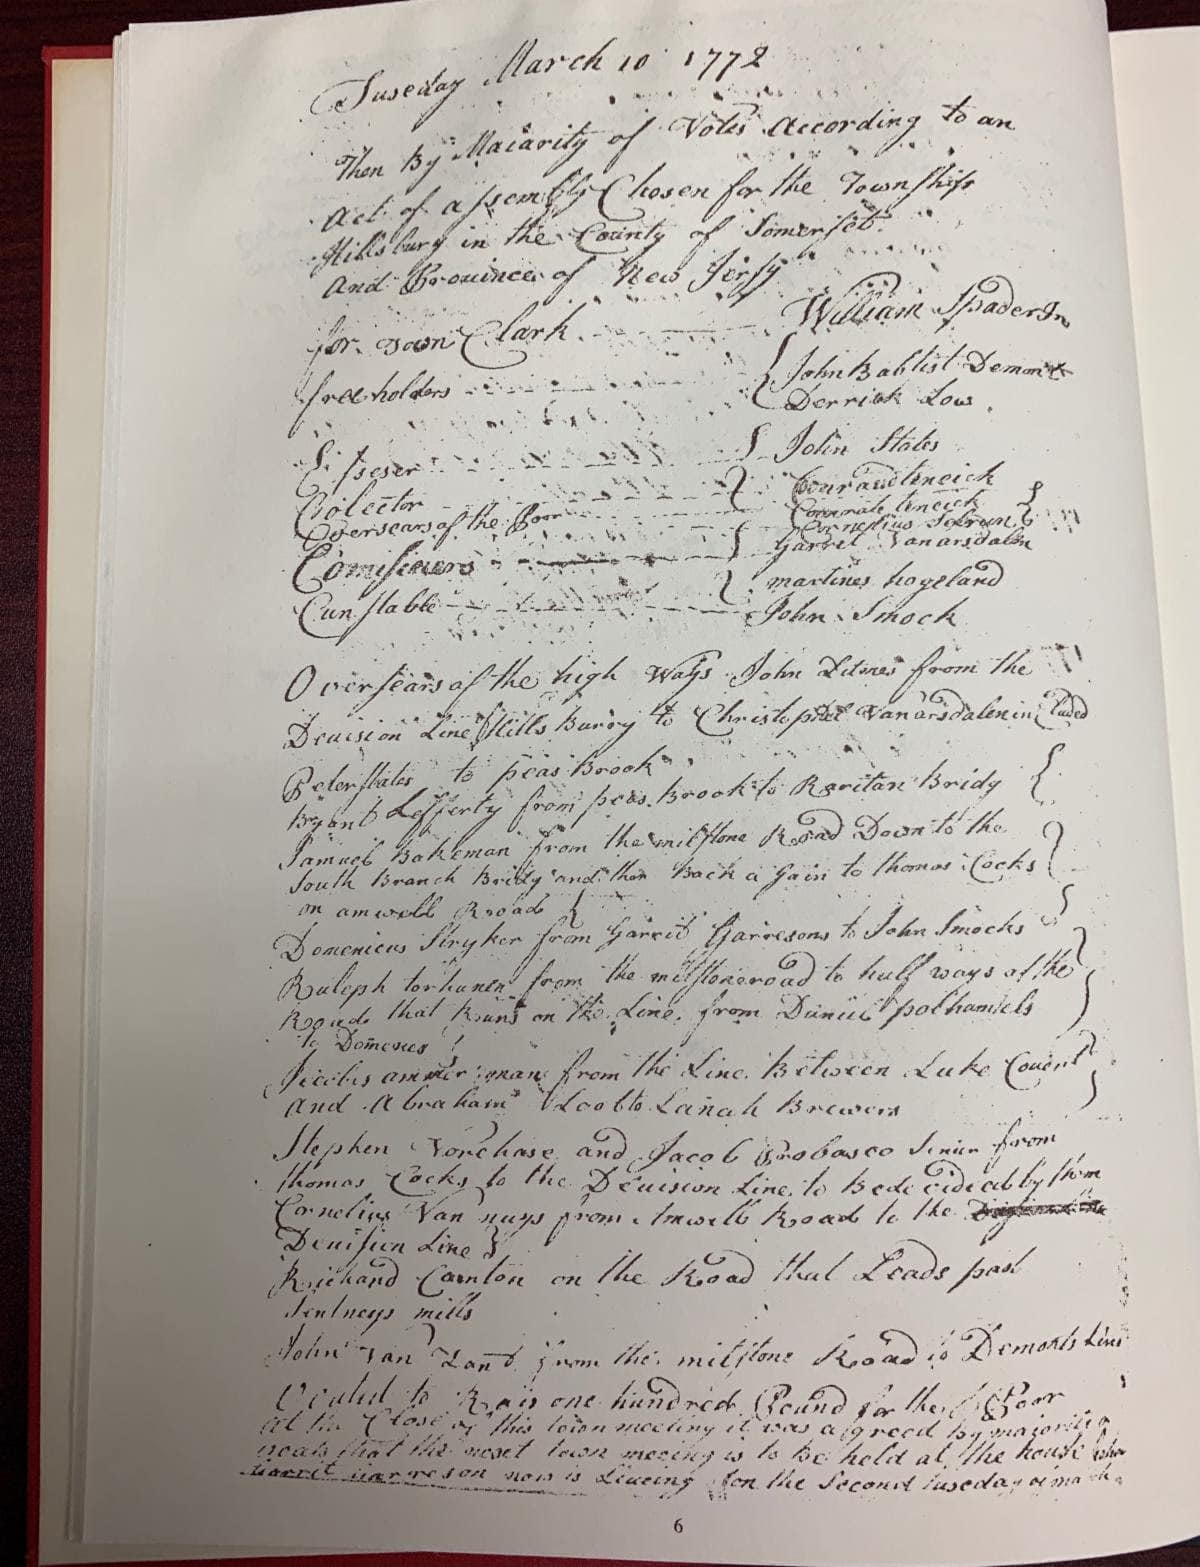 Tuseday March 10 1772
Then By Maiarity of Votes According to an
Act of assembly Chosen for the Township
Hillsbury in the County of Somerset
And Province of New Jersy
for Town Clark William Spader Jn
freeholders John Baptist Demont
Derrick Low
John States
Colector Counraudteneick
Oversears of the Poor teneick
Cornelius
Comiseners Garret Vanarsdalen
martines hogeland
Cunstable John Smock
Oversears of the high Ways John from the
Deuision Line Hills Burry to Christophel Vanarsdalen in Cluded
Peterstates to peas Brook
Bryant Lefferty from peas Brook to Raritan Bridg
Samuel Bakeman from the milstone Road Down to the
South Branch Bridg and then Back a Gain to thomas Cocks
on amwell Road
Domenicus Stryker from Garrit Garresons to John Smocks
Ruleph torhunen from the milstoneroad to half ways of the
Road that Runs on the Line from Daniel polhamiels
to
Jacobus ammerman from the Line Between Luke Covert
And Abraham to Lanah Brewers
Stephen Vorehase and Jacob Probasco Senior from
thomas Cocks to the Deuision Line to Bede cidied by them
Cornelius Van nuys from Amwell Road to the
Deuision Line
Richand on the Road that Leads past
mills
John Van Zant from the milstone Road to Demonts Line
to Rais one hundred Pound for the Poor
at the Close of this town meeting it was agreed by majoritie
that the next town meeting is to be held at the house
Garrit garreson now is Liueing on the Second tuseday
6